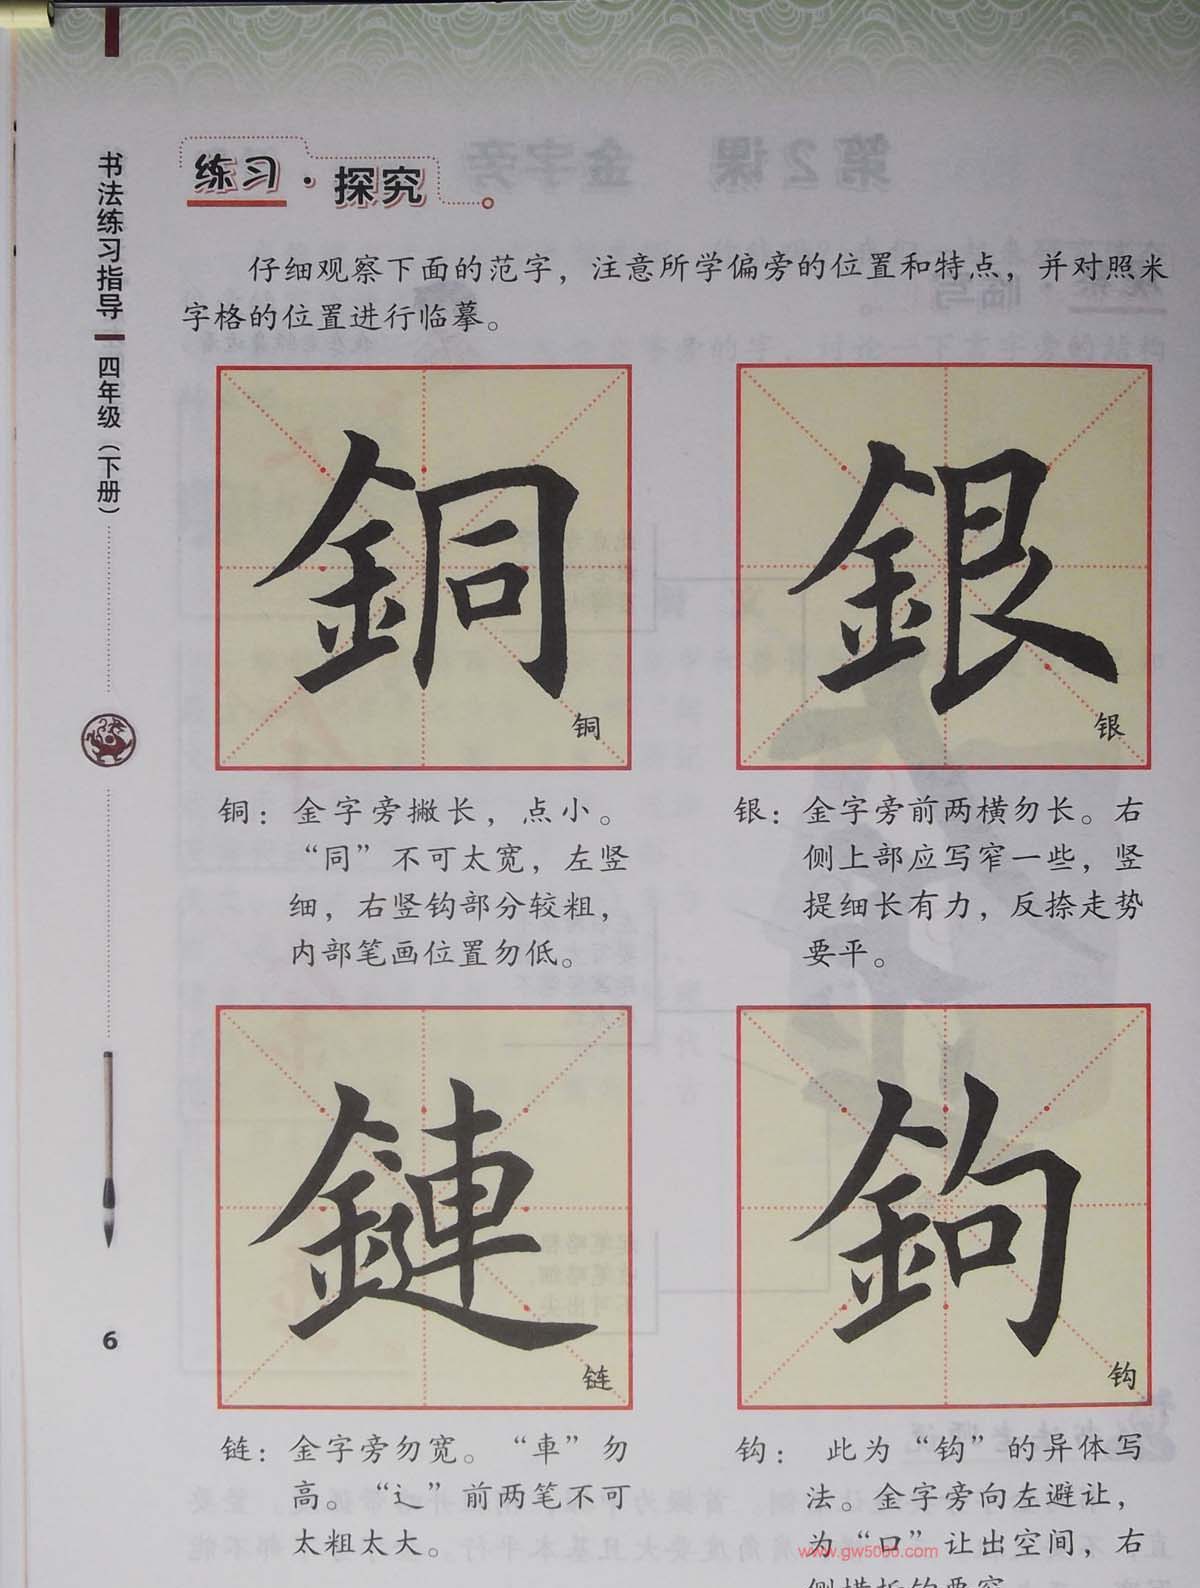 书法练习指导
四年级（下册）
6
练习·探究
仔细观察下面的范字，注意所学偏旁的位置和特点，并对照米
字格的位置进行临摹。
銅
铜
銀
银
铜：金字旁撇长，点小。
“同”不可太宽，左竖
细，右竖钩部分较粗，
内部笔画位置勿低。
银：金字旁前两横勿长。右
侧上部应写窄一些，竖
提细长有力，反捺走势
要平。
鏈
链
鉤
钩
链：金字旁勿宽。“車”勿
高。“辶”前两笔不可
太粗太大。
钩：此为“钩”的异体写
法。金字旁向左避让，
为“口”让出空间，右
www.gw5000.com